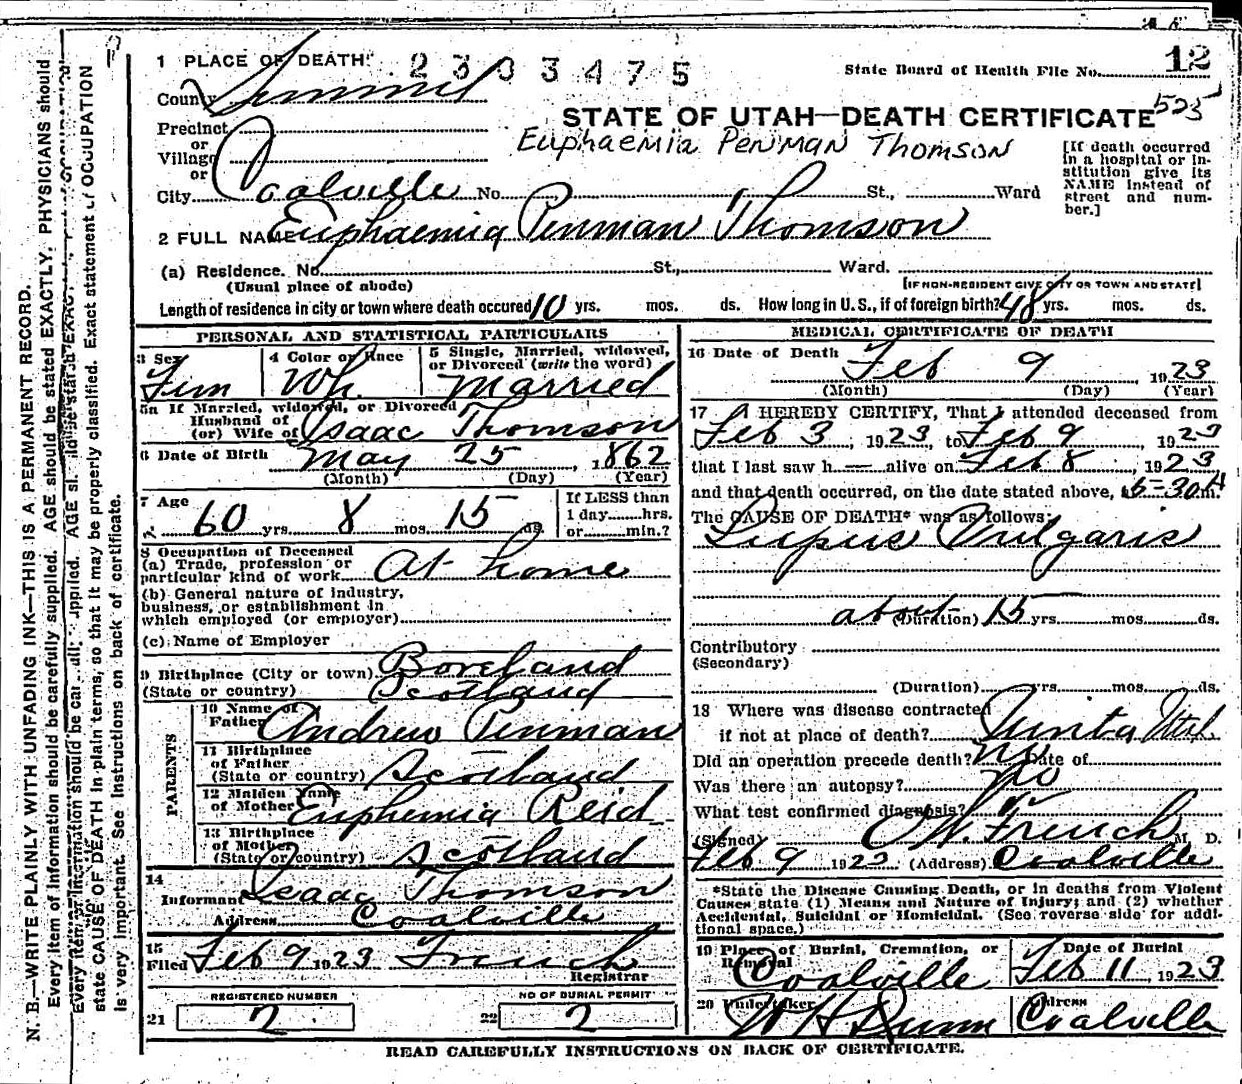 1 PLACE OF DEATH: 2303475
State Board of Health File No. 12
County Summit
STATE OF UTAH—DEATH CERTIFICATE 525
Precinct
or
Village
or
Euphaemia Penman Thomson
[If death occurred in a hospital or institution give its NAME instead of street and number.]
City Coalville No. St., Ward
2 FULL NAME Euphaemia Penman Thomson
(a) Residence. No. St., Ward.
(Usual place of abode) [IF NON-RESIDENT GIVE CITY OR TOWN AND STATE]
Length of residence in city or town where death occured 10 yrs. mos. ds. How long in U.S., if of foreign birth? 48 yrs. mos. ds.
PERSONAL AND STATISTICAL PARTICULARS
3 Sex 4 Color or Race 5 Single, Married, widowed, or Divorced (write the word)
Fem Wh. Married
5a If Married, widowed, or Divorced
Husband of
(or) Wife of Isaac Thomson
6 Date of Birth May 25, 1862
(Month) (Day) (Year)
7 Age 60 yrs. 8 mos. 15 ds.
If LESS than
1 day hrs.
or min.?
8 Occupation of Deceased
(a) Trade, profession or
particular kind of work At home
(b) General nature of industry,
business, or establishment in
which employed (or employer)
(c) Name of Employer
9 Birthplace (City or town) Boreland
(State or country) Scotland
PARENTS
10 Name of
Father Andrew Penman
11 Birthplace
of Father
(State or country) Scotland
12 Maiden Name
of Mother Euphemia Reid
13 Birthplace
of Mother
(State or country) Scotland
14
Informant Isaac Thomson
Address Coalville
15
Filed Feb 9 1923 French
Registrar
REGISTERED NUMBER NO OF BURIAL PERMIT
21 2 22 2
MEDICAL CERTIFICATE OF DEATH
16 Date of Death Feb 9, 1923
(Month) (Day) (Year)
17 I HEREBY CERTIFY, That I attended deceased from
Feb 3, 1923, to Feb 9, 1923
that I last saw h — alive on Feb 8, 1923
and that death occurred, on the date stated above, 5-30 A m.
The CAUSE OF DEATH* was as follows:
Lupus Vulgaris
about (Duration) 15 yrs. mos. ds.
Contributory
(Secondary)
(Duration) yrs. mos. ds.
18 Where was disease contracted
if not at place of death? Utah
Did an operation precede death? no Date of
Was there an autopsy? no
What test confirmed diagnosis?
(Signed) French M. D.
Feb 9 1923 (Address) Coalville
*State the Disease Causing Death, or in deaths from Violent
Causes state (1) Means and Nature of Injury; and (2) whether
Accidental, Suicidal or Homicidal. (See reverse side for addi-
tional space.)
19 Place of Burial, Cremation, or Removal Date of Burial
Coalville Feb 11 1923
20 Undertaker Address
W H Dunn Coalville
READ CAREFULLY INSTRUCTIONS ON BACK OF CERTIFICATE.
N. B.—WRITE PLAINLY WITH UNFADING INK—THIS IS A PERMANENT RECORD.
Every item of information should be carefully supplied. AGE should be stated EXACTLY. PHYSICIANS should
state CAUSE OF DEATH in plain terms, so that it may be properly classified. Exact statement of OCCUPATION
is very important. See instructions on back of certificate.